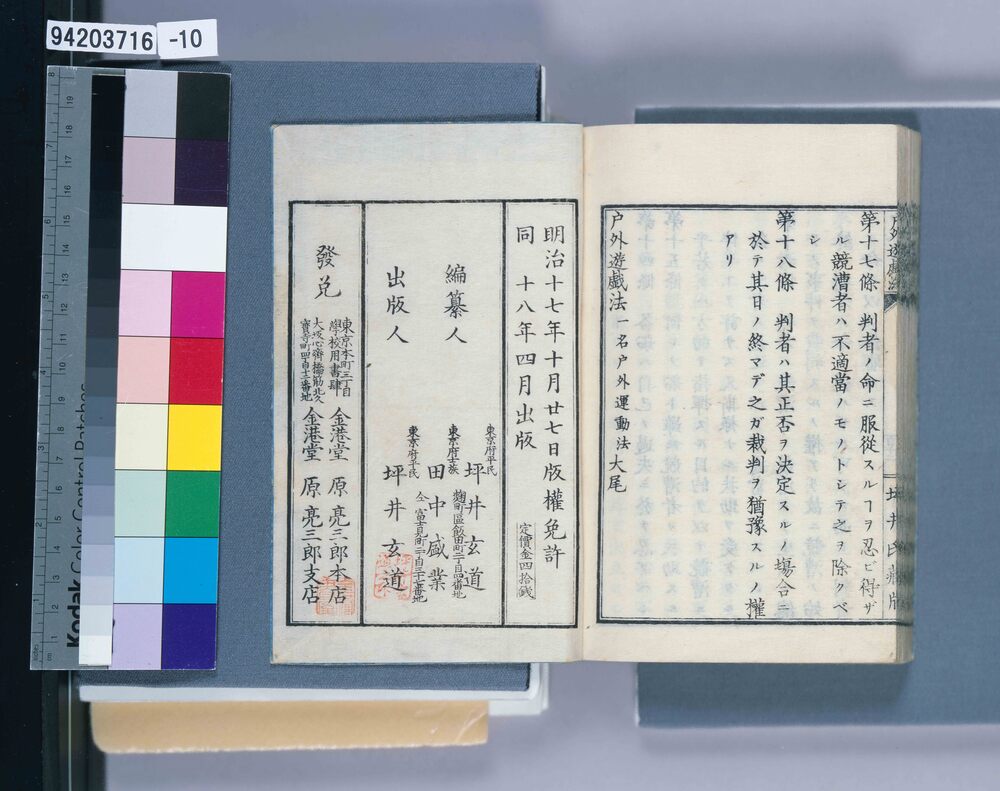 94203716 -10
Kodak Color Control Patches
戸外遊戯法
坪井氏藏版
第十七條 判者ノ命ニ服從スルヿヲ忍ビ得ザ
ル競漕者ハ不適當ノモノトシテ之ヲ除クベ
シ
第十八條 判者ハ其正否ヲ決定スルノ塲合ニ
於テ其日ノ終マデ之ガ裁判ヲ猶豫スルノ權
アリ
戸外遊戯法 一名戸外運動法 大尾
明治十七年十月廿七日版權免許
同 十八年四月出版
定價金四拾錢
編纂人
東京府平民
坪井玄道
麹町區飯田町二丁目四番地
東京府士族
田中盛業
仝 富士見町二丁目三十七番地
出版人
東京府平民
坪井玄道
發兌
東京本町三丁目
學校用書肆
金港堂 原亮三郎本店
大坂心齋橋筋北久
寳寺町四丁目十二番地
金港堂 原亮三郎支店